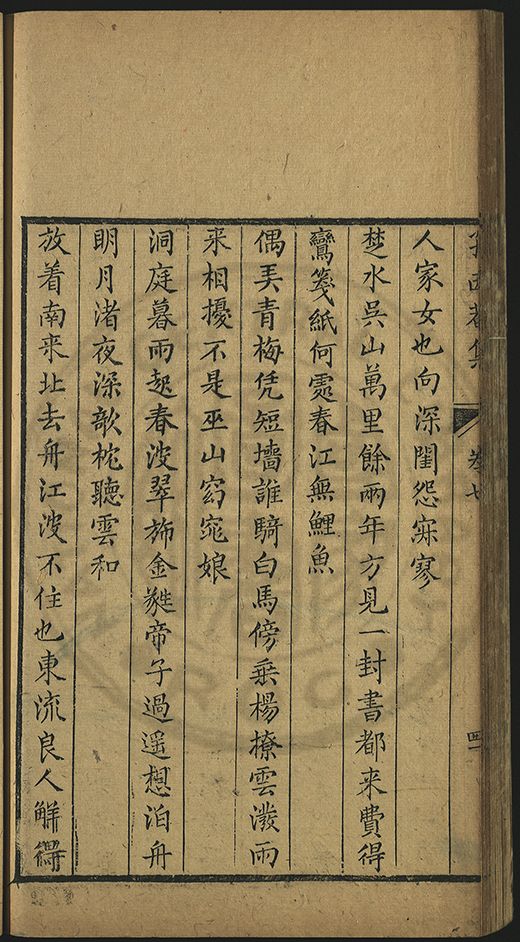 集
卷七
人家女也向深閨怨寂寥
楚水吳山萬里餘兩年方見一封書都来費得
鸞箋紙何處春江無鯉魚
偶弄青梅凭短墻誰騎白馬傍垂楊撩雲潑雨
来相擾不是巫山窈窕娘
洞庭暮雨起春波翠斾金蕤帝子過遥想泊舟
明月渚夜深欹枕聽雲和
放着南来北去舟江波不住也東流良人解得